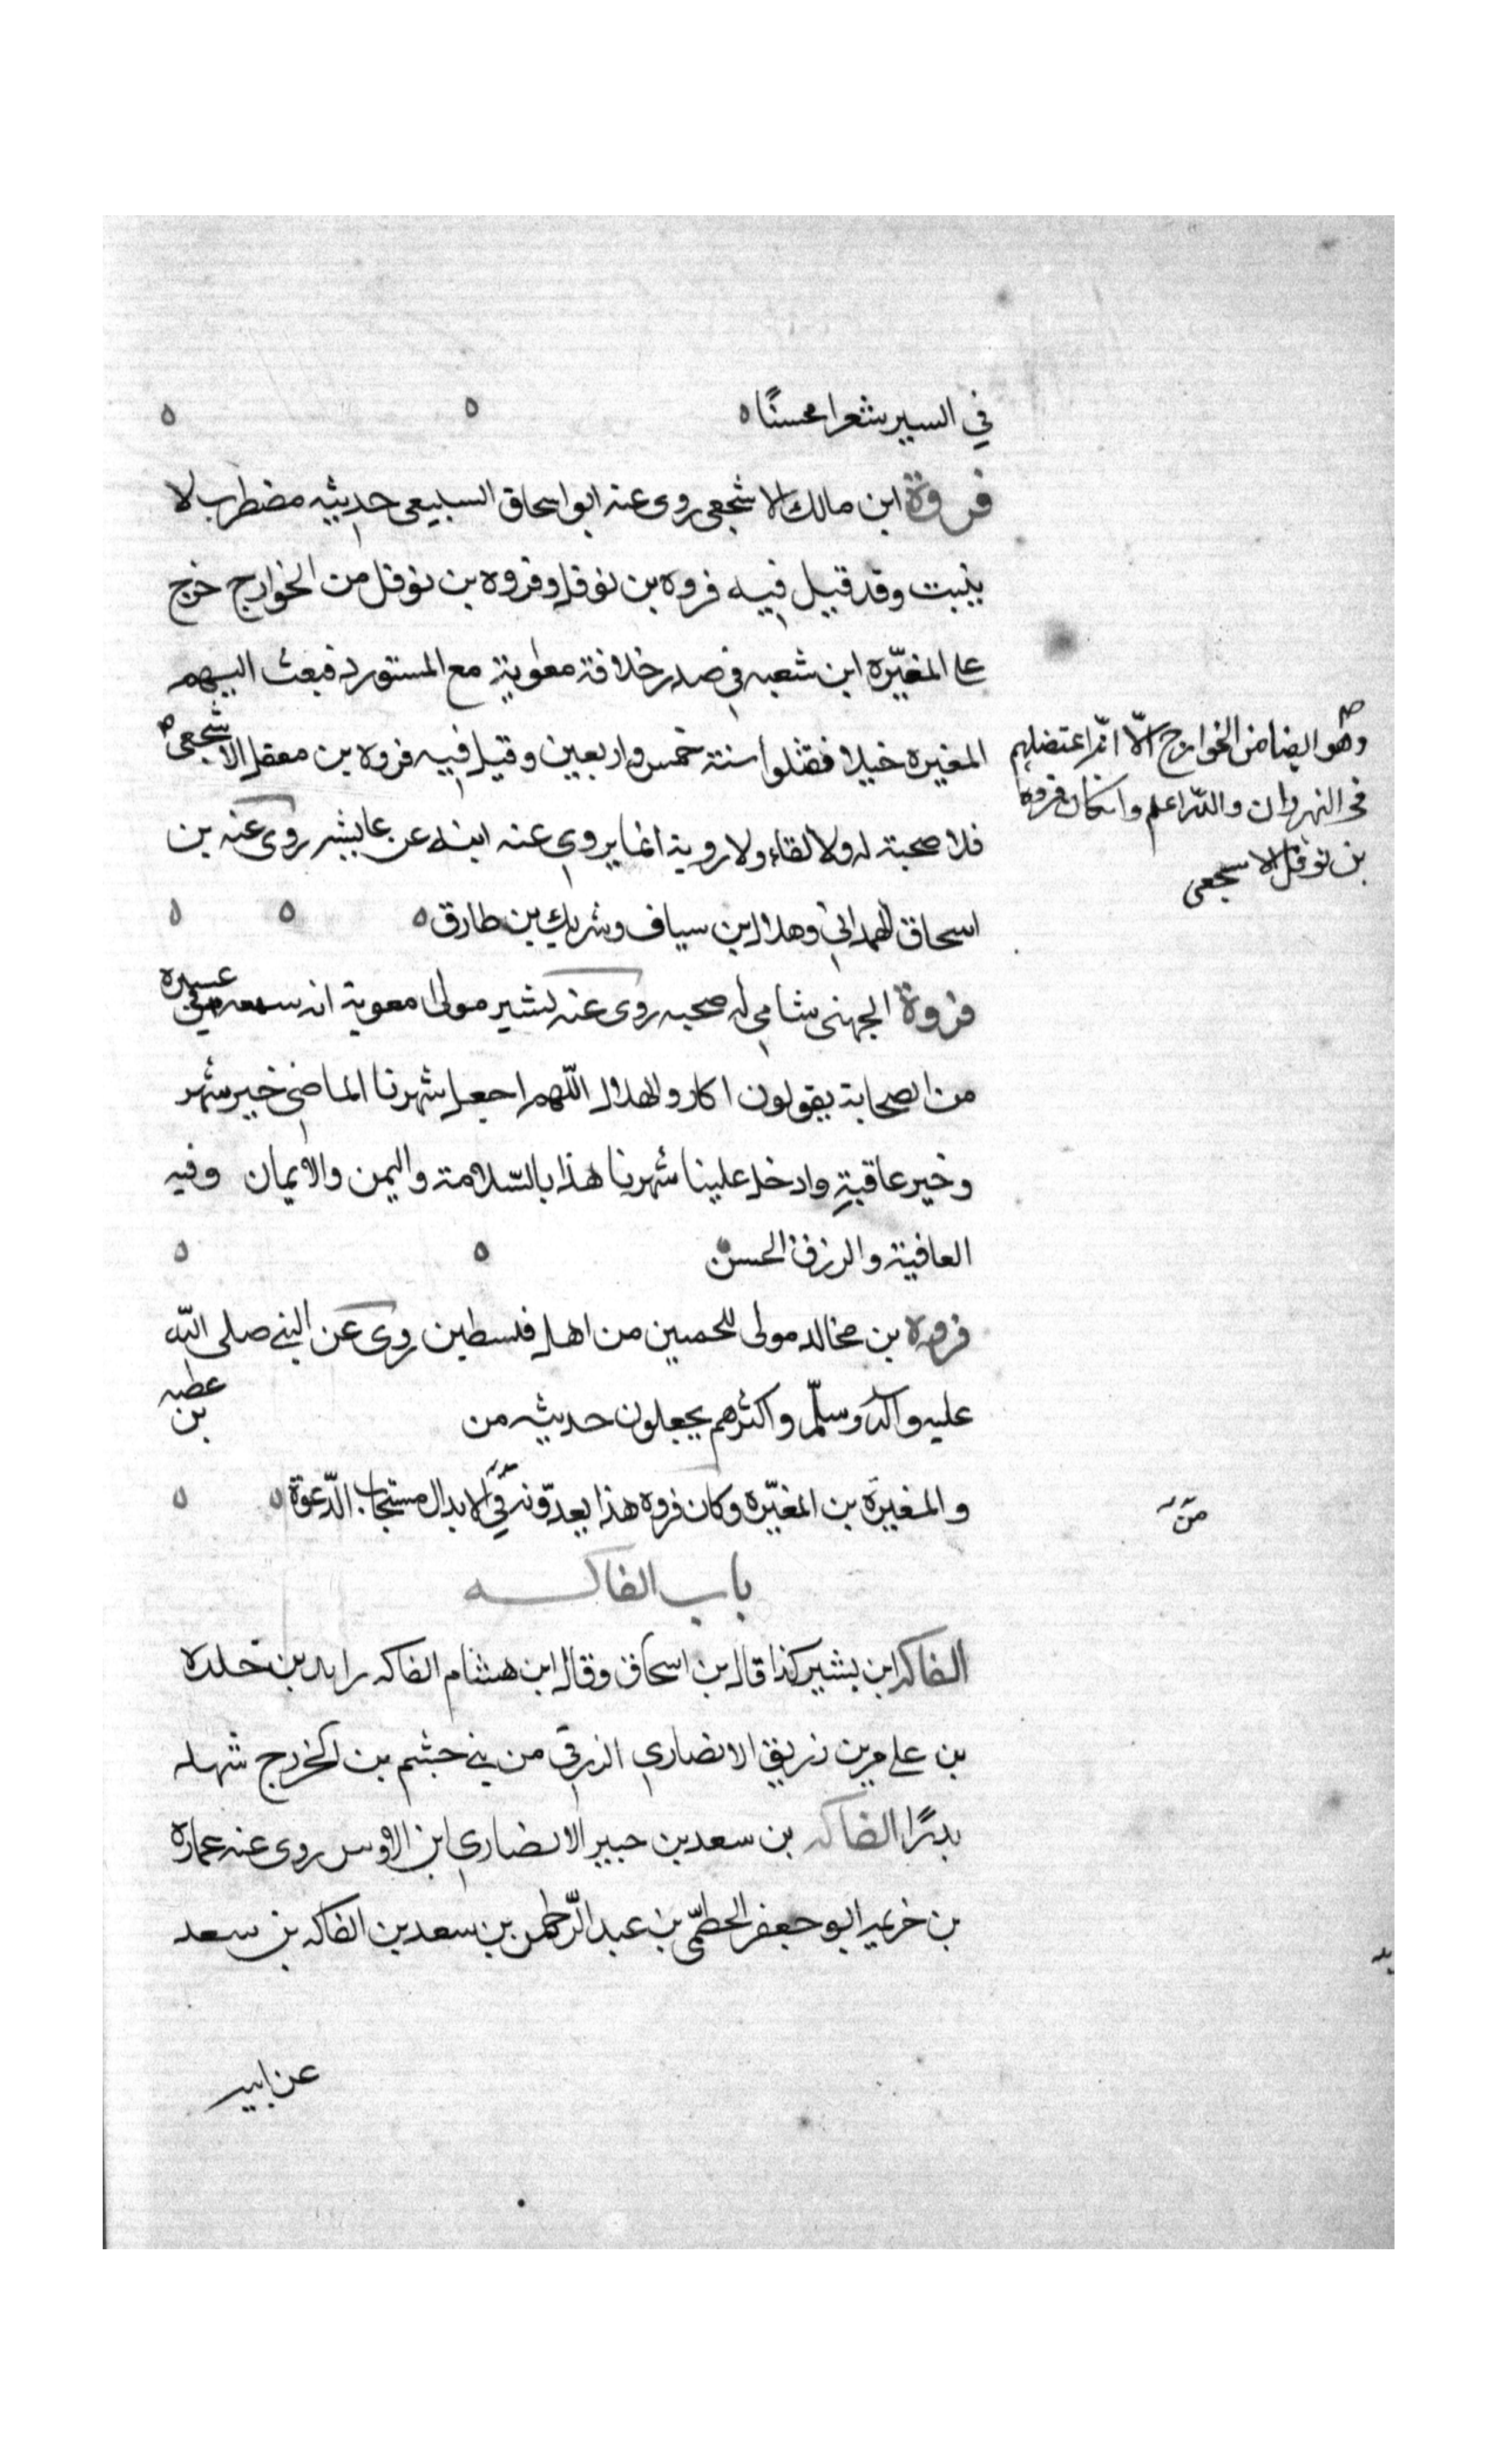 في السير شعرا محسنًا ه ه ه
فروة ابن مالك الاشجعي روى عنه ابو اسحاق السبيعي حديثه مضطرب لا
يثبت وقد قيل فيه فروه بن نوفل وفروه بن نوفل من الخوارج خرج
على المغيّره ابن شعبه في صدر خلافة معاوية مع المستورد فبعث اليهم
المغيره خيلا فقتلوا سنة خمس واربعين وقيل فيه فروه بن معقل الاشجعي
وهو ايضا من الخوارج الّا انّه اعتضلهم
في النهروان والله اعلم وانكان فروه
بن نوفل الاسجعي
فلا صحبة له ولا لقاء ولا روية انما يروي عنه ابيه عن عايشه روى عنه بن
اسحاق الهمداني وهلال بن سياف وشريك بن طارق ه ه ه
فروة الجهنى شامي له صحبه روى عنه بشير مولى معوية انه سمعه في عسيره
من الصحابة يقولون اللهم اجعل شهرنا الماضى خير شهر
وخير عاقبةٍ وادخل علينا شهرنا هذا بالسّلامة واليمن والايمان وفيه
العافية والرزق الحسن ه ه
فروه بن مخالد مولى للحميين من اهل فلسطين روى عن النبي صلى الله
عليه وآله وسلّم واكثرهم يجعلون حديثه من عطيه بن
والمغيرة بن المغيّره وكان فروه هذا يعدّونه في الابدال مستجاب الدّعوة ه ه
من
باب الفاكه
الفاكه ابن بشير كذا قال بن اسحاق وقال ابن هشام الفاكه بن خلدة
بن عامر بن زريق الانصاري الزرقي من بني جشم بن الخزرج شهد
بدرًا الفاكه بن سعد بن جبير الانصاري ابن الاوس روى عنه عماره
بن خزيمه ابو جعفر الخطمّي بن عبد الرّحمن بن سعد بن الفاكه بن سعد
عن ابيه